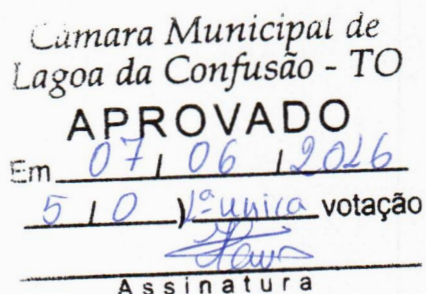 Câmara Municipal de
Lagoa da Confusão - TO
APROVADO
Em 07 / 06 / 2016
5 / 0 ) 1ª unica votação
Assinatura